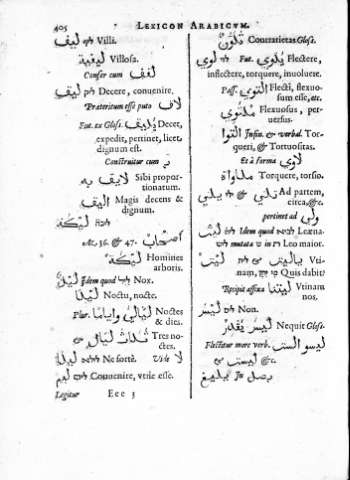 405 LEXICON ARABICVM.
ليف ליף Villi.
ليفية Villosa.
Confer cum لفف
ليق ליק Decere, conuenire.
Præteritum esse puto لاق
Fut. ex Gloss. يليق Decet,
expedit, pertinet, licet,
dignum est.
Construitur cum ب
لايق به Sibi propor-
tionatum.
اليق Magis decens &
dignum.
ליכה ليكة
Ac. 36. & 47. اصحاب
ليكة Homines
arboris.
ليل Idem quod ליל Nox.
ليلا Noctu, nocte.
Plur. ليالي واياما Noctes
& dies.
ثلاث ليال Tres no-
ctes.
ليلا לילא Ne fortè. Vide لا
ليم לים Conuenire, vtile esse.
Legitur Eee 3
تلون Contrarietas Gloss.
لوي לוי Fut. يلوي Flectere,
inflectere, torquere, inuoluere.
Pass. التوي Flecti, flexuo-
sum esse, etc.
ملتوي Flexuosus, per-
uersus.
التوا Infin. & verbal. Tor-
queri, & Tortuositas.
Et à forma لاوي
ملاواة Torquere, torsio.
يلي & تلي Ad partem,
circa, &c.
pertinet ad ولي
ليث Idem quod לביא Leæna.
ליש mutata ש in ת Leo maior.
ليت לית يا ليت Vti-
nam, מי יתן Quis dabit?
Recipit affixa ليتنا Vtinam
nos.
ليس ליס Non.
ليس يقدر Nequit Gloss.
Flectitur more verb. ليسو الست
ليست &c.